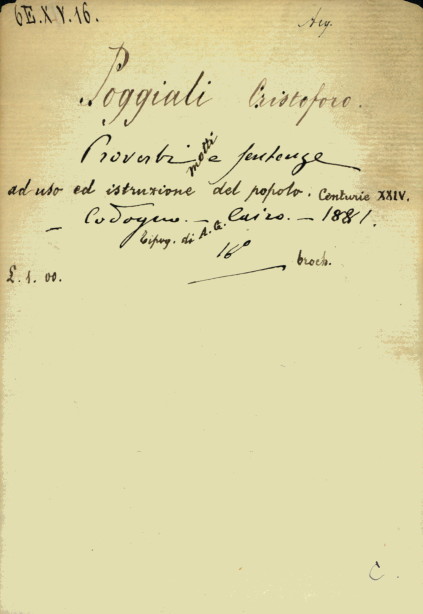 6E.XV.16.
Acq.
Poggiali Cristoforo.
Proverbi motti e sentenze
ad uso ed istruzione del popolo. Centurie XXIV.
– Codogno. – Cairo. – 1881.
Tipog. di A. G.
16° broch.
£. 1. 00.
C.